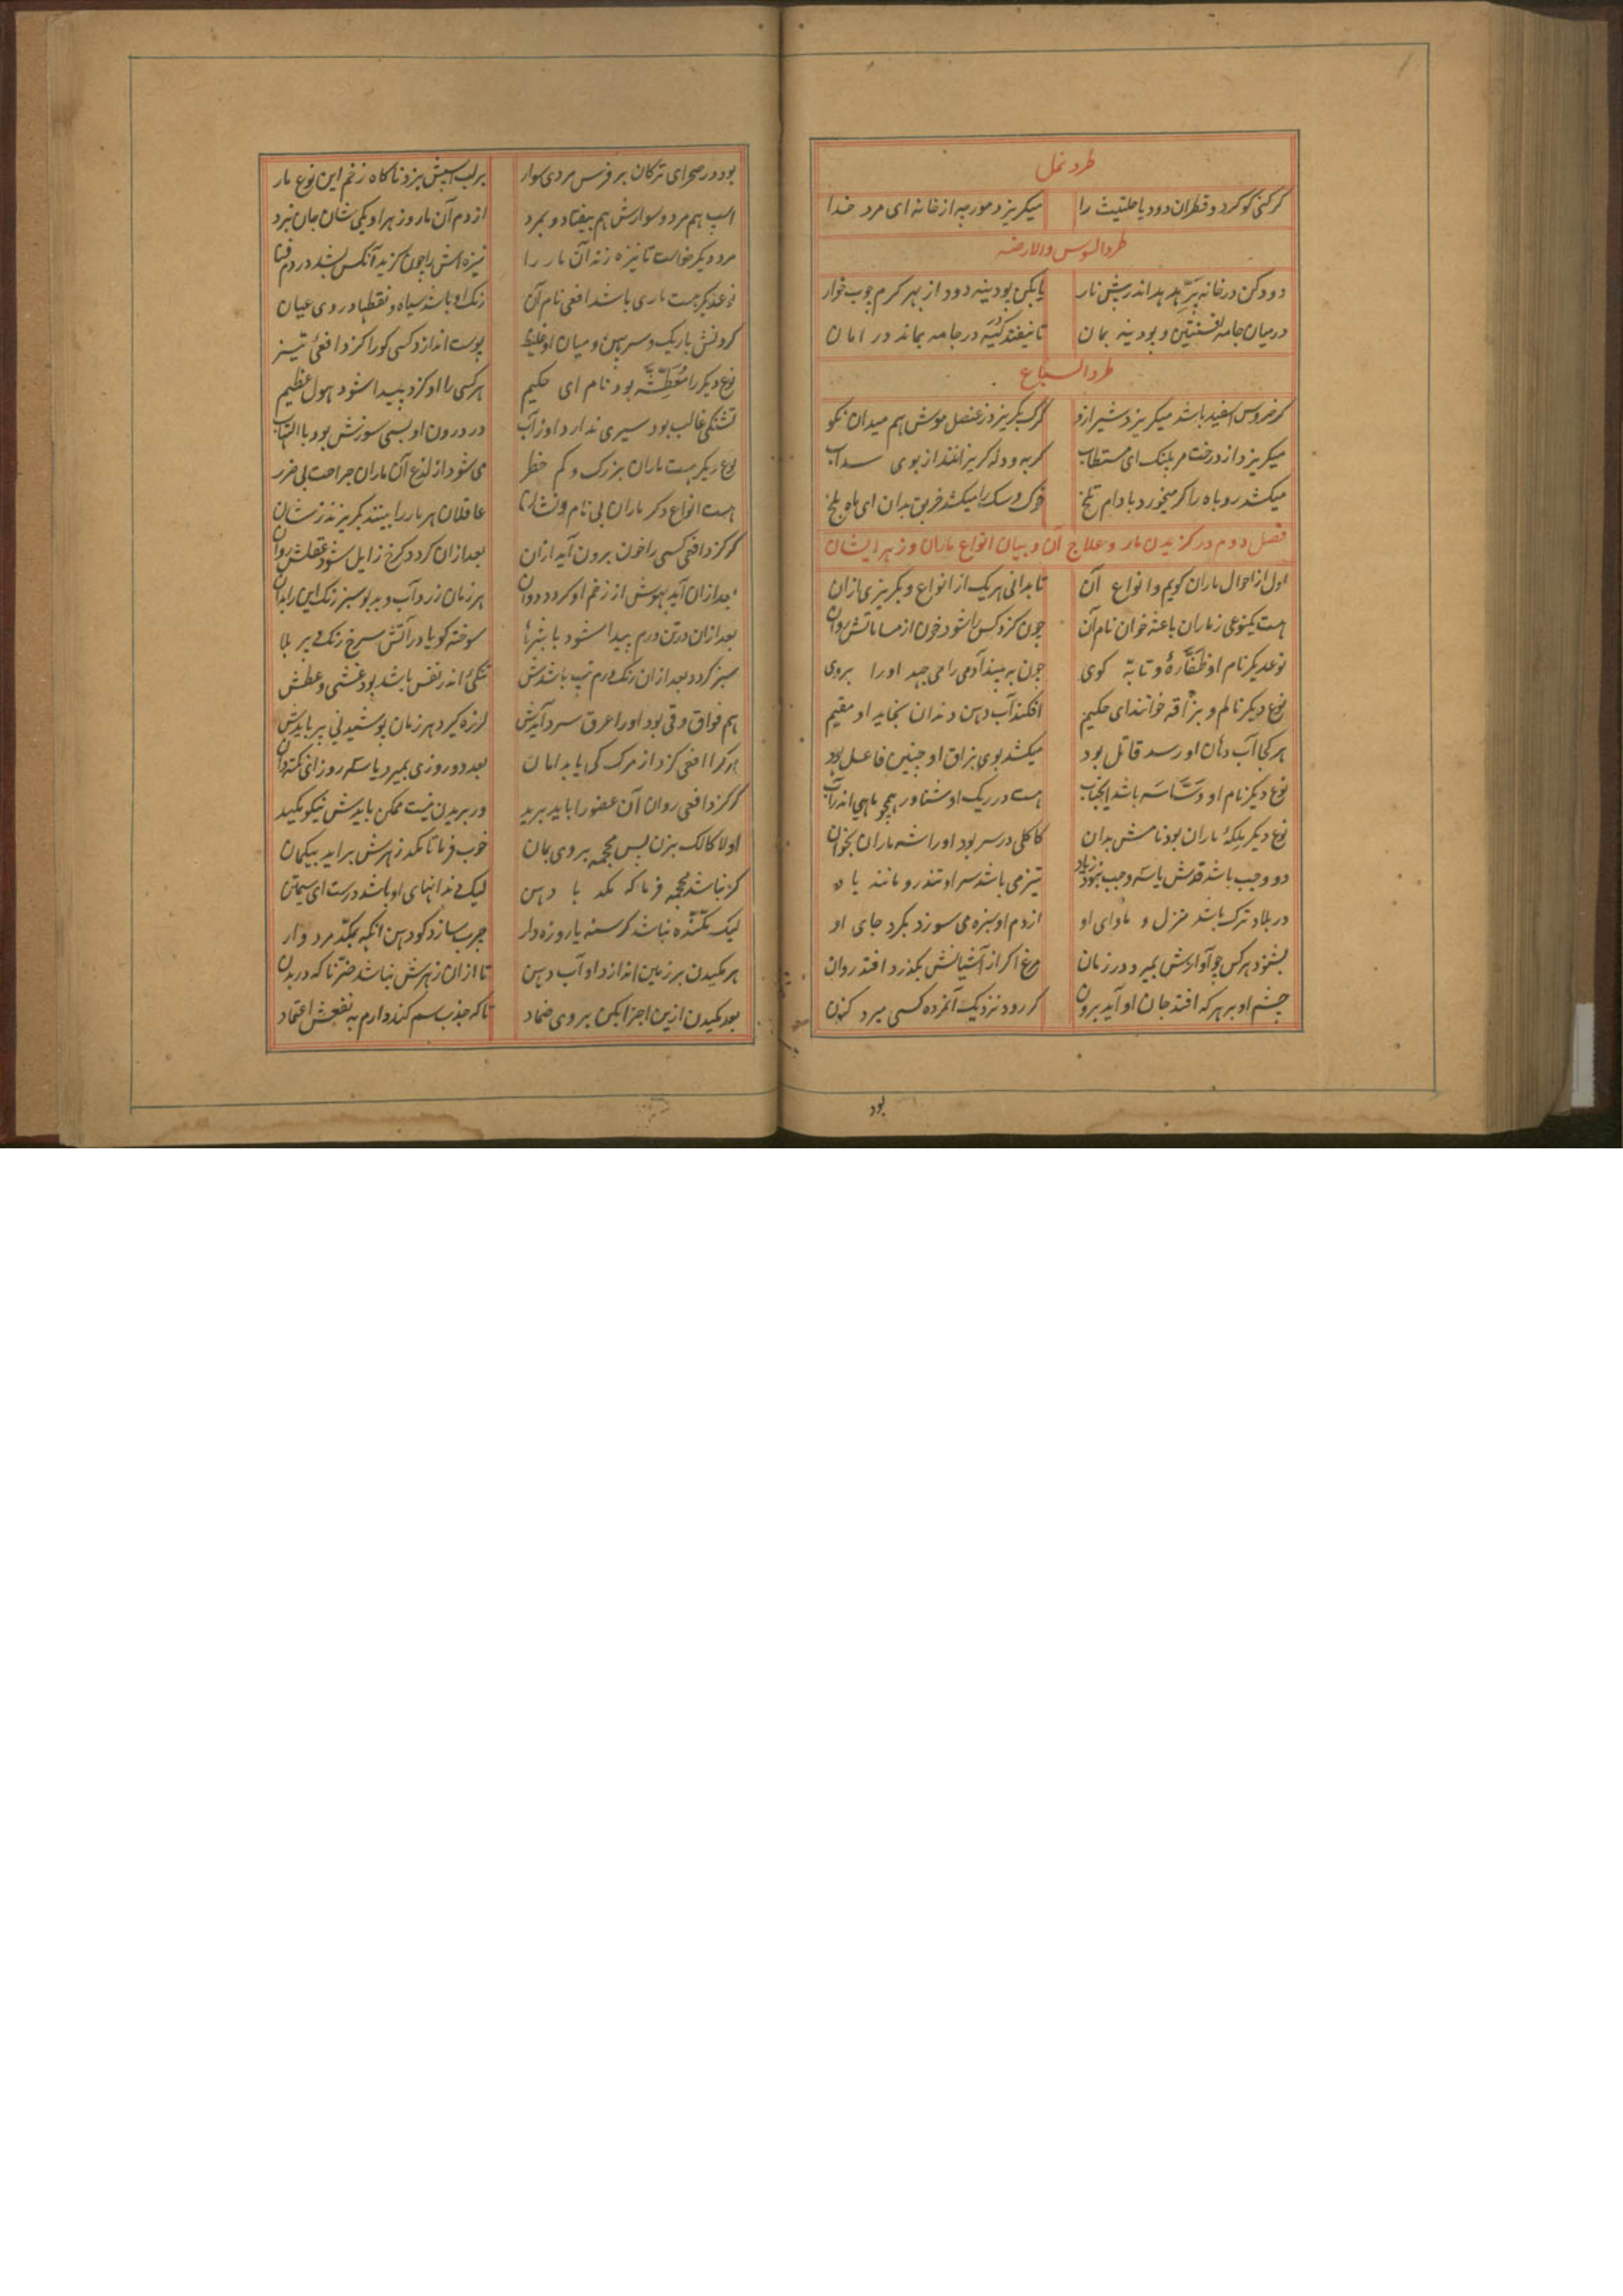 طرد نمل
گر کنی گوگرد و قطران دود یا حلتیت را میگریزد مورچه از خانه ای مرد خدا
طرد السوس والارضه
دود کن در خانه پر هدهد اندر پیش نار یا بکن بودینه دود از بهر کرم چوب خوار
در میان جامه افسنتین و بودینه بمان تا نیفتد کیّه در جامه بماند در امان
طرد السباع
گر خروس اسفید باشد میگریزد شیر ازو گرگ بگریزد ز عنصل موش هم میدان نکو
میگریزد از درخت مر پلنگ ای مستطاب گربه و دله گریزانند از بوی سداب
میکشد روباه را گر میخورد بادام تلخ خوک و سگ را میکشد خربق بدان ای ماه بلخ
فصل دوم در گزیدن مار و علاج آن و بیان انواع ماران و زهر ایشان
اول از احوال ماران گویم و انواع آن تا بدانی هر یک از انواع و بگریزی ازان
هست یکنوعی ز ماران باعثه خوان نام آن چون گزد کس را شود خون از مساماتش روان
نوع دیگر نام او ظفّاره و تابّه گوی چون به بیند آدمی را می جهد او را بروی
نوع دیگر نام وبزّاقه خوانند ای حکیم افکند آب دهن دندان بخاید او مقیم
هر کجا آب دهان او رسد قاتل بود میکشد بوی بزاق او چنین فاعل بود
نوع دیگر نام او دسّاسه باشد ایجناب هست در ریگ او شناور همچو ماهی اندر آب
نوع دیگر ملکهٔ ماران بود نامش بدان کاکلی در سر بود او را شه ماران بخوان
دو وجب باشد قدش یا سه وجب نبود زیاد تیز می باشد سر او تندرو مانند باد
در بلاد ترک باشد منزل و ماوای او از دم او سبزه می سوزد بگرد جای او
بشنود هر کس چو آوازش بمیرد در زمان مرغ اگر از آشیانش بگذرد افتد روان
چشم او بر هر که افتد جان او آید برون گر رود نزدیک آنمرده کسی میرد کنون
بود
بود در صحرای ترکان بر فرس مردی سوار بر لب اسپش بزد ناگاه زخم این نوع مار
اسپ هم مرد و سوارش هم بیفتاد و بمرد از دم آن مار و زهر او یکی شان جان نبرد
مرد دیگر خواست تا نیزه زند آن مار را نیزه اش را چون گزید آنکس بشد در دم فنا
نوع دیگر هست ماری باشد افعی نام آن رنگ او باشد سیاه و نقطها در وی عیان
گردنش باریک و سر پهن و میان او غلیظ پوست اندازد کسی کو را گزد افعئ تیز
نوع دیگر را معطّشه بود نام ای حکیم هر کسی را او گزد پیدا شود هول عظیم
تشنگی غالب بود سیری ندارد او ز آب در درون او بسی سوزش بود با التهاب
نوع دیگر هست ماران بزرگ و کم خطر می شود از لذع آن ماران جراحت بی ضرر
هست انواع دگر ماران بی نام و نشان عاقلان هر مار را بینند بگریزند زشان
گر گزد افعی کسی را خون برون آید ازان بعد ازان گردد کرخ زایل شود عقلش روان
بعد ازان آید بهوش از زخم او گردد دوان هر زمان زرد آب و بدبو سبز رنگ این را بدان
بعد ازان در تن ورم پیدا شود با بثرها سوخته گویا در آتش سرخ رنگ پر بلا
سبز گردد بعد ازان رنگ ورم تپ باشدش تنگئ اندر نفس باشد بود غشی و عطش
هم فواق و قی بود او را عرق سرد آیدش لرزه گیرد هر زمان پوشیدنی بر بایدش
هر کرا افعی گزد از مرگ کی یابد امان بعد دو روزی بمیرد یا سه روز ای نکته دان
گر گزد افعی روان آن عضو را باید برید در بریدن نیست ممکن بایدش نیکو مکید
اولا کالک بزن پس محجمه بر وی بمان خوب فرما تا مکد زهرش براید بیگمان
گر نباشد محجمه فرما که مکد با دهن لیک دندانهای او باشد درست ای سیمتن
لیک مکّنده نباشد گرسنه یا روزه دار چرب سازد گو دهن انگه بمکّد مرد وار
هر مکیدن بر زمین اندازد او آب دهن تا ازان زهرش نباشد ضرّ ناگه در بدن
بعد مکیدن ازین اجزا بکن بر وی ضماد تا که جذب سم کند دارم به نفعش اعتماد